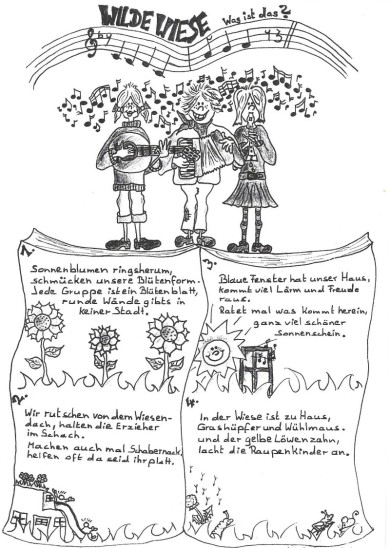 WILDE WIESE Was ist das?
1.
Sonnenblumen ringsherum,
schmücken unsere Blütenform.
Jede Gruppe ist ein Blütenblatt,
runde Wände gibts in
keiner Stadt.
2.
Wir rutschen von dem Wiesen-
dach, halten die Erzieher
im Schach.
Machen auch mal Schabernack,
helfen oft da seid ihr platt.
3.
Blaue Fenster hat unser Haus,
kommt viel Lärm und Freude
raus.
Ratet mal was kommt herein,
ganz viel schöner
Sonnenschein.
4.
In der Wiese ist zu Haus,
Grashüpfer und Wühlmaus.
und der gelbe Löwenzahn,
lacht die Raupenkinder an.